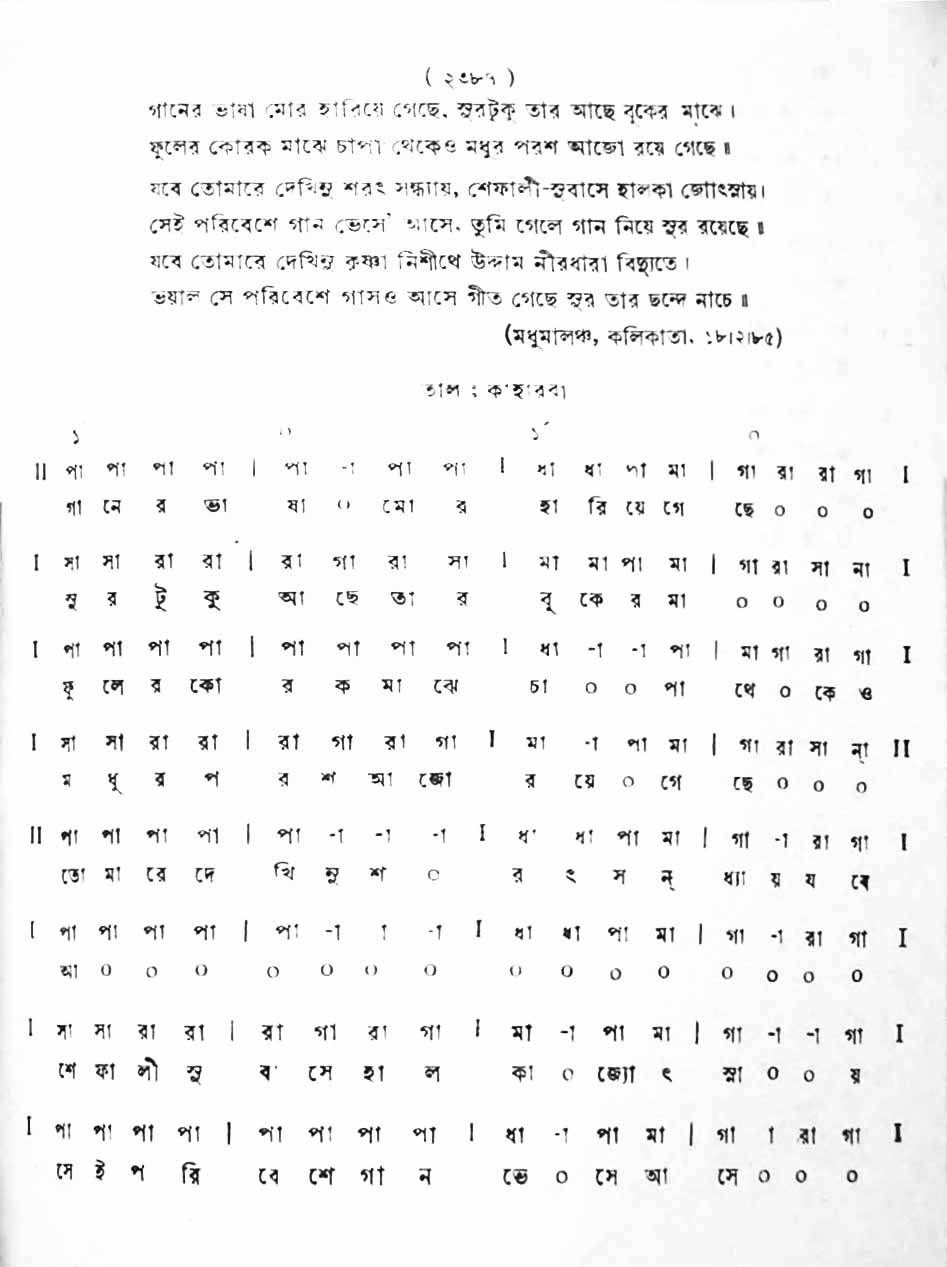 ( ২৩৮৭ )
গানের ভাষা মোর হারিয়ে গেছে, সুরটুকু তার আছে বুকের মাঝে।
ফুলের কোরক মাঝে চাপা থেকেও মধুর পরশ আজো রয়ে গেছে॥
যবে তোমারে দেখিনু শরৎ সন্ধ্যায়, শেফালী-সুবাসে হালকা জ্যোৎস্নায়।
সেই পরিবেশে গান ভেসে আসে, তুমি গেলে গান নিয়ে সুর রয়েছে॥
যবে তোমারে দেখিনু কৃষ্ণা নিশীথে উদ্দাম নীরধারা বিদ্যুতে।
ভয়াল সে পরিবেশে গাসও আসে গীত গেছে সুর তার ছন্দে নাচে॥
(মধুমালঞ্চ, কলিকাতা, ১৮।২।৮৫)
তাল : কাহারবা
১ ০ ১´ ০
II পা পা পা পা | পা -া পা পা I ধা ধা পা মা | গা রা রা গা I
গা নে র ভা ষা ০ মো র হা রি য়ে গে ছে ০ ০ ০
I সা সা রা রা | রা গা রা সা I মা মা পা মা | গা রা সা না I
সু র টু কু আ ছে তা র বু কে র মা ০ ০ ০ ০
I পা পা পা পা | পা পা পা পা I ধা -া -া পা | মা গা রা গা I
ফু লে র কো র ক মা ঝে চা ০ ০ পা থে ০ কে ও
I সা সা রা রা | রা গা রা গা I মা -া পা মা | গা রা সা ন্া II
ম ধু র প র শ আ জো র য়ে ০ গে ছে ০ ০ ০
II পা পা পা পা | পা -া -া -া I ধা ধা পা মা | গা -া রা গা I
তো মা রে দে খি নু শ ০ র ৎ স ন্ ধ্যা য় য বে
I পা পা পা পা | পা -া া -া I ধা ধা পা মা | গা -া রা গা I
আ ০ ০ ০ ০ ০ ০ ০ ০ ০ ০ ০ ০ ০ ০ ০
I সা সা রা রা | রা গা রা গা I মা -া পা মা | গা -া -া গা I
শে ফা লী সু বা সে হা ল কা ০ জ্যো ৎ স্না ০ ০ য়
I পা পা পা পা | পা পা পা পা I ধা -া পা মা | গা া রা গা I
সে ই প রি বে শে গা ন ভে ০ সে আ সে ০ ০ ০